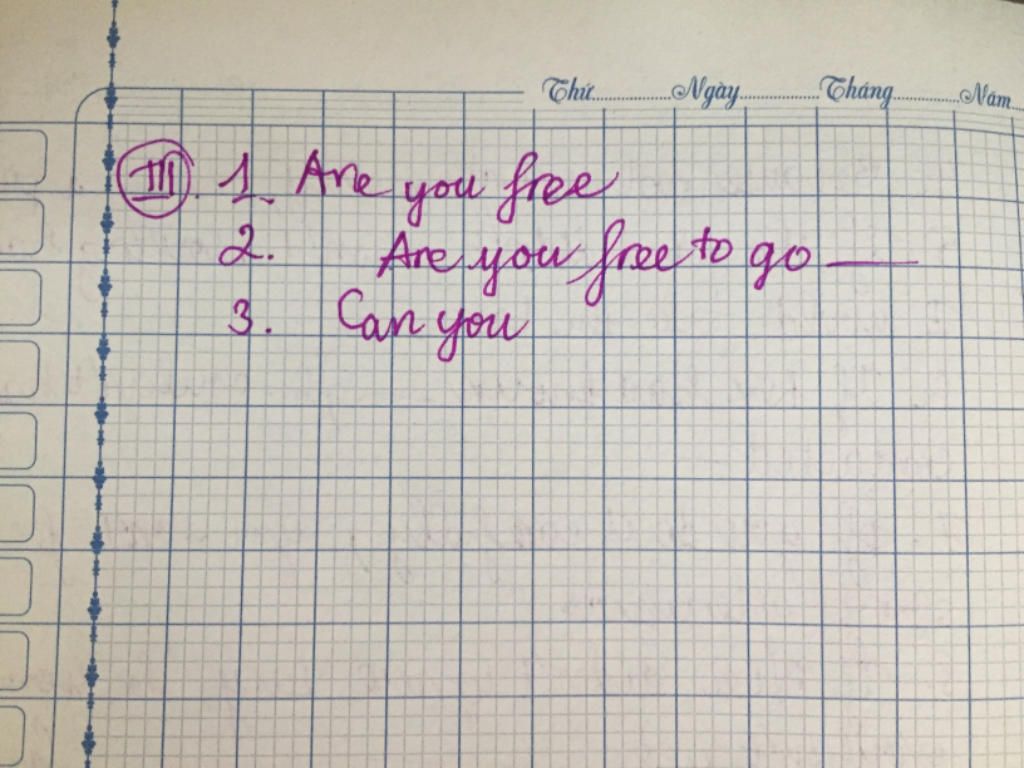 Thứ............Ngày............Tháng............Năm...
III. 1. Are you free
2. Are you free to go ____
3. Can you